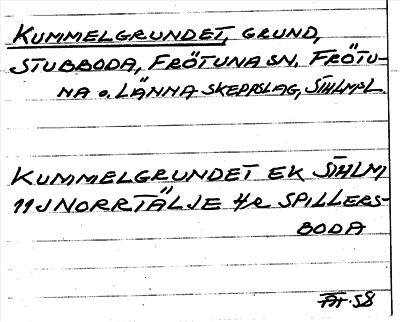 KUMMELGRUNDET, GRUND,
STUBBODA, FRÖTUNA SN, FRÖTU-
NA o. LÄNNA SKEPPSLAG, STHLMS L.
KUMMELGRUNDET EK STHLM
11J NORRTÄLJE SPILLERS-
BODA
58